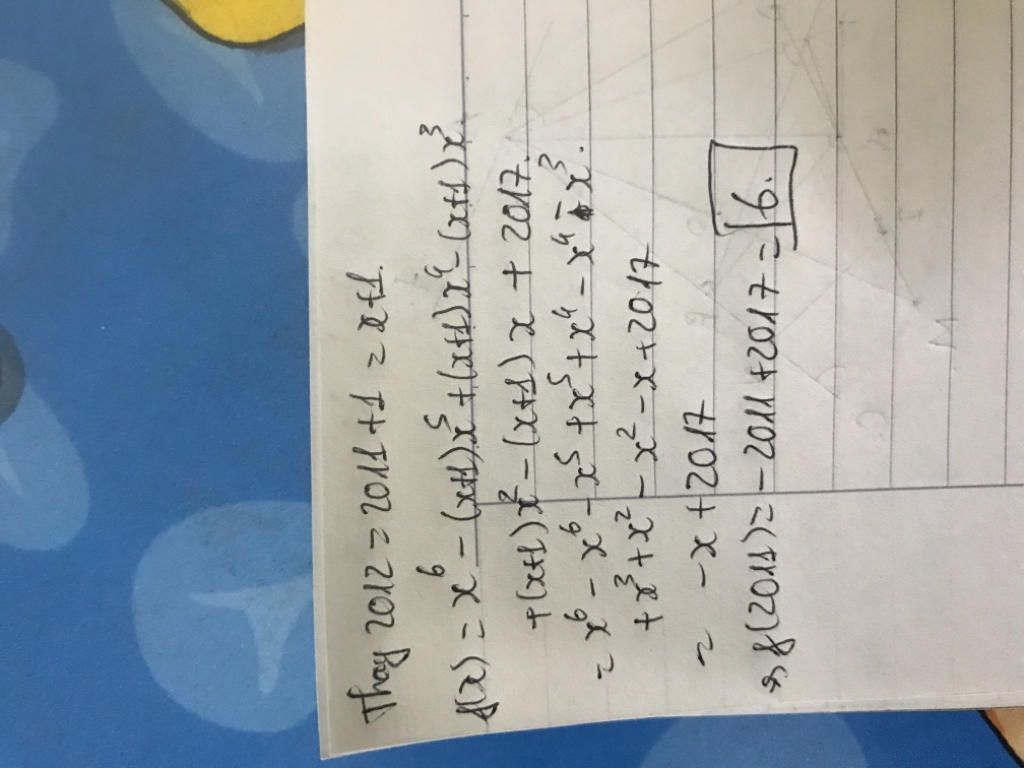 Thay 2012 = 2011 + 1 = x+1.
f(x) = x⁶ - (x+1)x⁵ + (x+1)x⁴ - (x+1)x³
+(x+1)x² - (x+1)x + 2017.
= x⁶ - x⁶ - x⁵ + x⁵ + x⁴ - x⁴ - x³.
+ x³ + x² - x² - x + 2017
= -x + 2017
=> f(2011) = - 2011 + 2017 = 6.